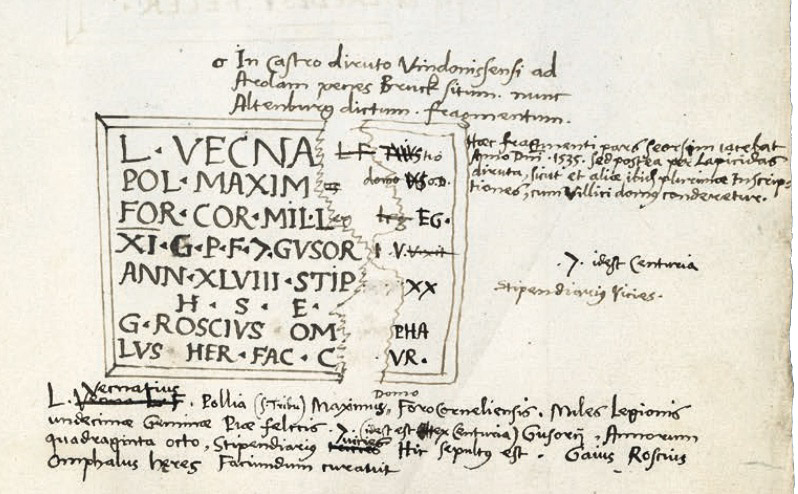 In Castro diruto Vindonissensi ad
Arolam penes Bruck situm. nunc
Altenburg dictum. fragmentum.
L · VECNA L F
POL · MAXIM
FOR · COR · MILL EG ·
XI · G · P · F · 7 · GVSOR I · V.
ANN · XLVIII · STIP XX
H · S · E ·
G · ROSCIVS OM PHA
LVS HER · FAC · C VR ·
Hec fragmenti pars seorsim iacebat
Anno Dni · 1535. sed postea per Lapicidas
diruta, sicut et aliae itidem plurimae Inscrip-
tiones, cum Villici domus conderetur.
. 7. idest Centuria
Stipendiarius Vicies.
Vecnatius
L. F. Pollia (s. Tribu) Maximus, Domo Foro Corneliensis. Miles Legionis
undecimae Geminae Piae felicis. 7. (idest ex Centuria) Gusorij, Annorum
quadraginta octo, Stipendiarius vicies Hic sepultus est. Gaius Roscius
Omphalus heres Faciundum curavit